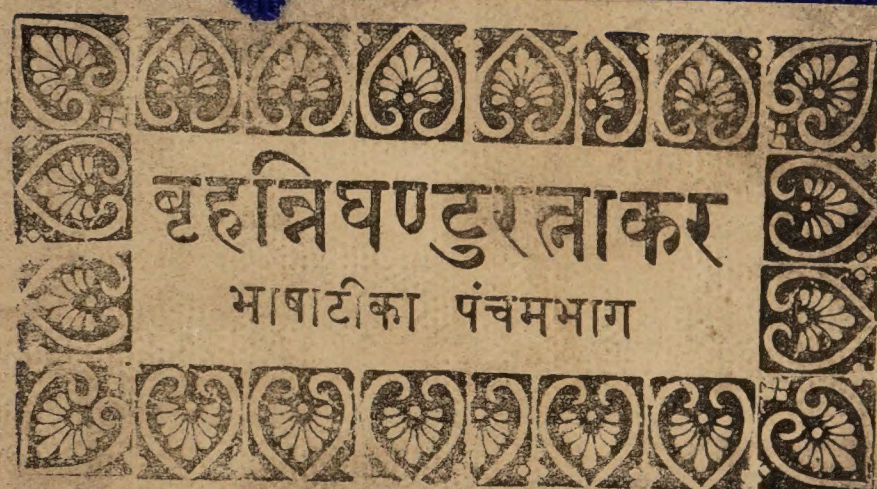 बृहन्निघण्टुरत्नाकर
भाषाटीका पंचमभाग